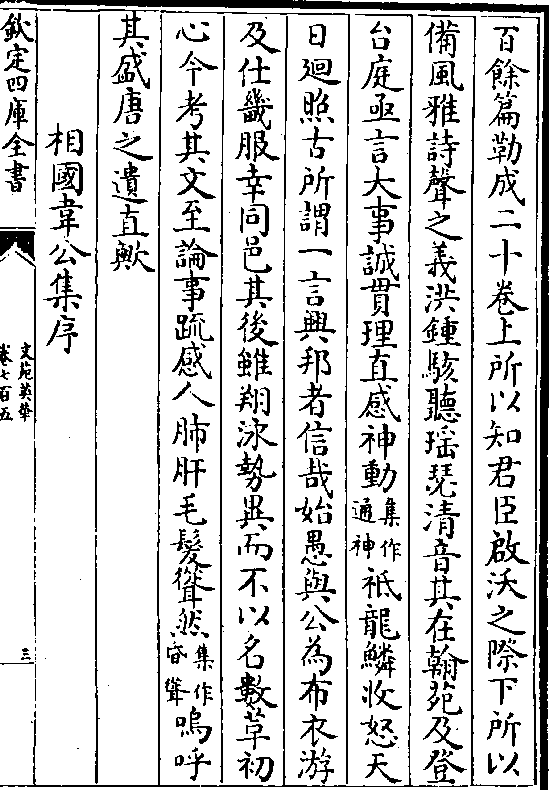 百餘篇勒成二十卷上所以知君臣啟沃之際下所以
備風雅詩聲之義洪鍾駭聽瑶瑟清音其在翰苑及登
台庭亟言大事誠貫理直感神動集作通神祗龍鱗收怒天
日廻照古所謂一言興邦者信哉始愚與公為布衣游
及仕畿服幸同邑其後雖翔泳勢異而不以名數革初
心今考其文至論事疏感人肺肝毛髮聳然集作昏聳嗚呼
其盛唐之遺直歟
相國韋公集序
欽定四庫全書
文苑英華
卷七百五
三